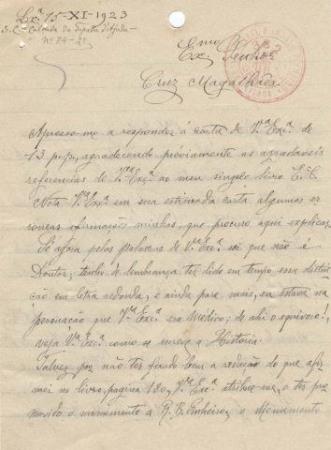 Lxª, 15-XI-1923
S. C. Calçada da Tapada d'Ajuda
Nº 74-2º
Exmo
Exº Senhor
Cruz Magalhães
Apresso-me a responder á carta de Vª Exª. de
13 p.p., agradecendo previamente as agradaveis
referencias de Vª Exª. ao meu singelo livro
Nota Vª Exª em sua estimada carta algumas
afirmações minhas, que procuro aqui explicar.
Só agora pelas palavras de Vª Exª. sei que não é
Doutor; tenho lembrança ter lido em tempo essa distin-
ção em letra redonda, e ainda para mais, eu estava na
persuação que Vª Exª. era Medico; de ahi o equivoco!,
veja Vª Exª. como se escreve a Historia.
Talvez por não ter ficado bem a redação do que afir-
mei no livro, pagina 180, Vª Exª. atribue-me o ter pro-
movido o monumento a R. B. Pinheiro, o Monumento